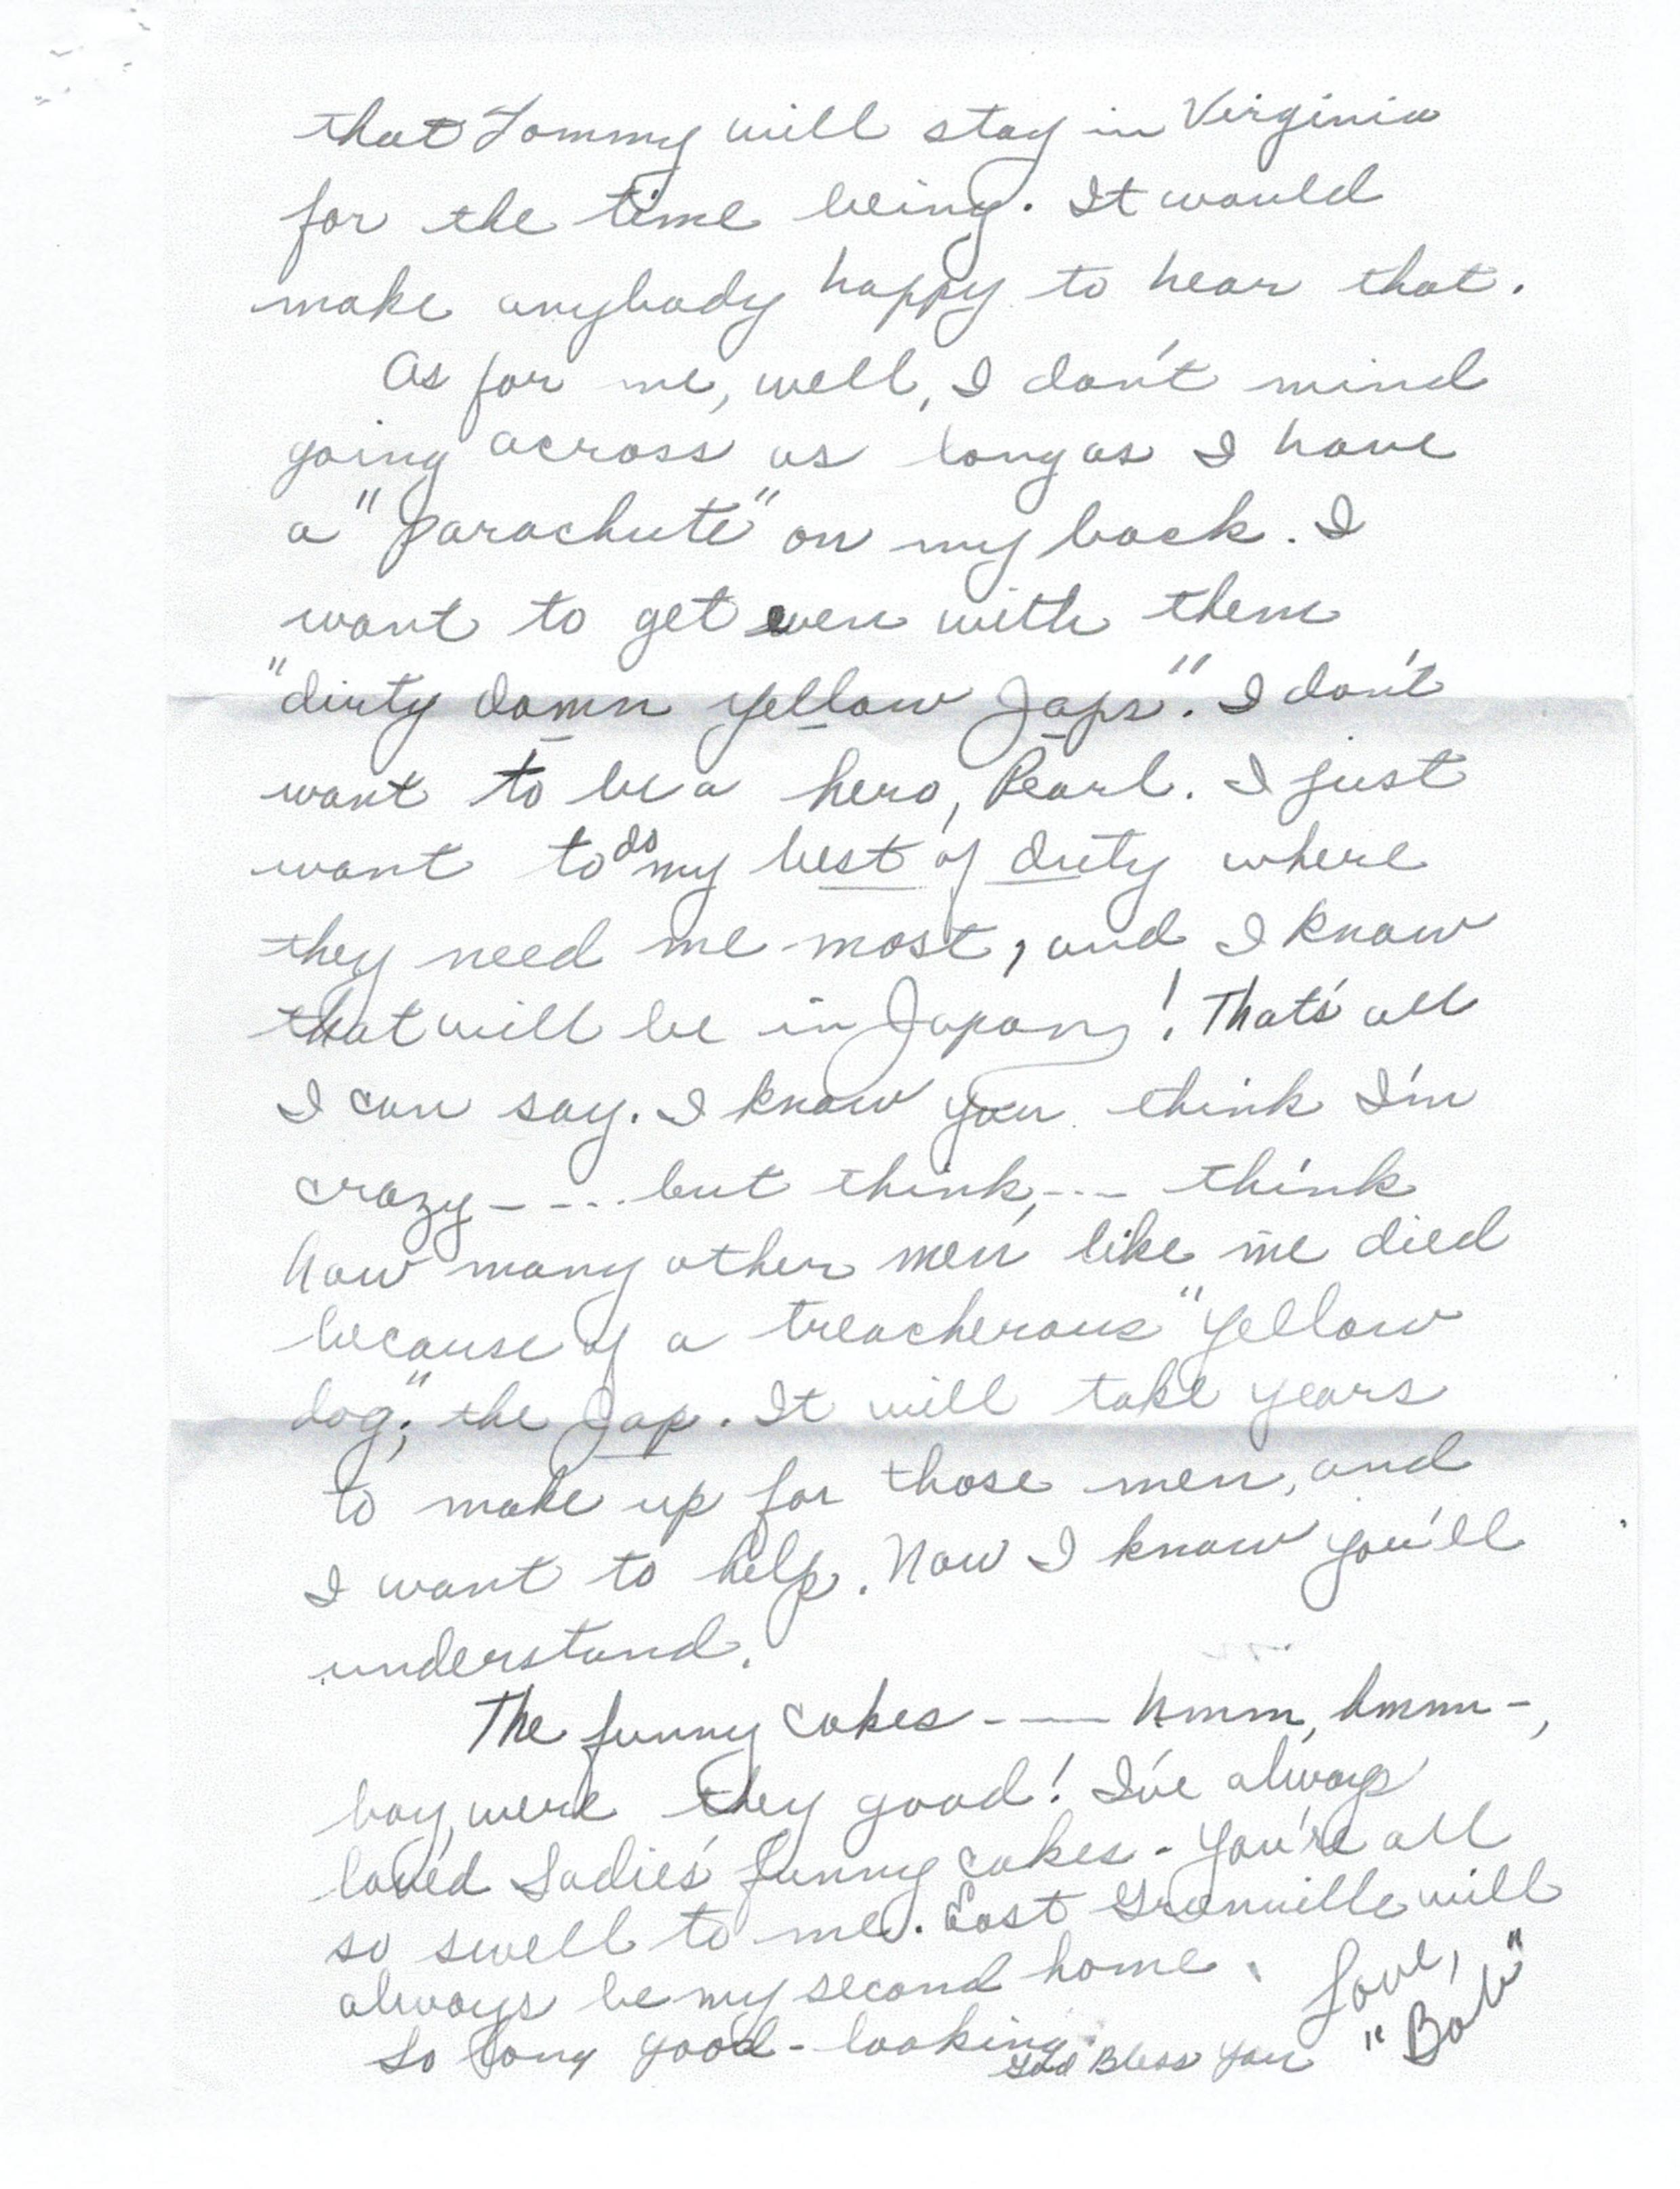 that Tommy will stay in Virginia
for the time being. It would
make anybody happy to hear that.
As for me, well, I don't mind
going across as long as I have
a "parachute" on my back. I
want to get even with them
"dirty damn yellow Japs". I don't
want to be a hero, Pearl. I just
want to do my best of duty where
they need me most, and I know
that will be in Japan! That's all
I can say. I know you think I'm
crazy - - - - but think, - - - think
how many other men like me died
because of a treacherous "yellow
dog", the Jap. It will take years
to make up for those men, and
I want to help. Now I know you'll
understand.
The funny cakes - - — hmm, hmmm -,
boy, were they good! I've always
loved Sadie's funny cakes - You're all
so swell to me. East Granville will
always be my second home.
So long good-looking.
God Bless you
Love,
"Bob"